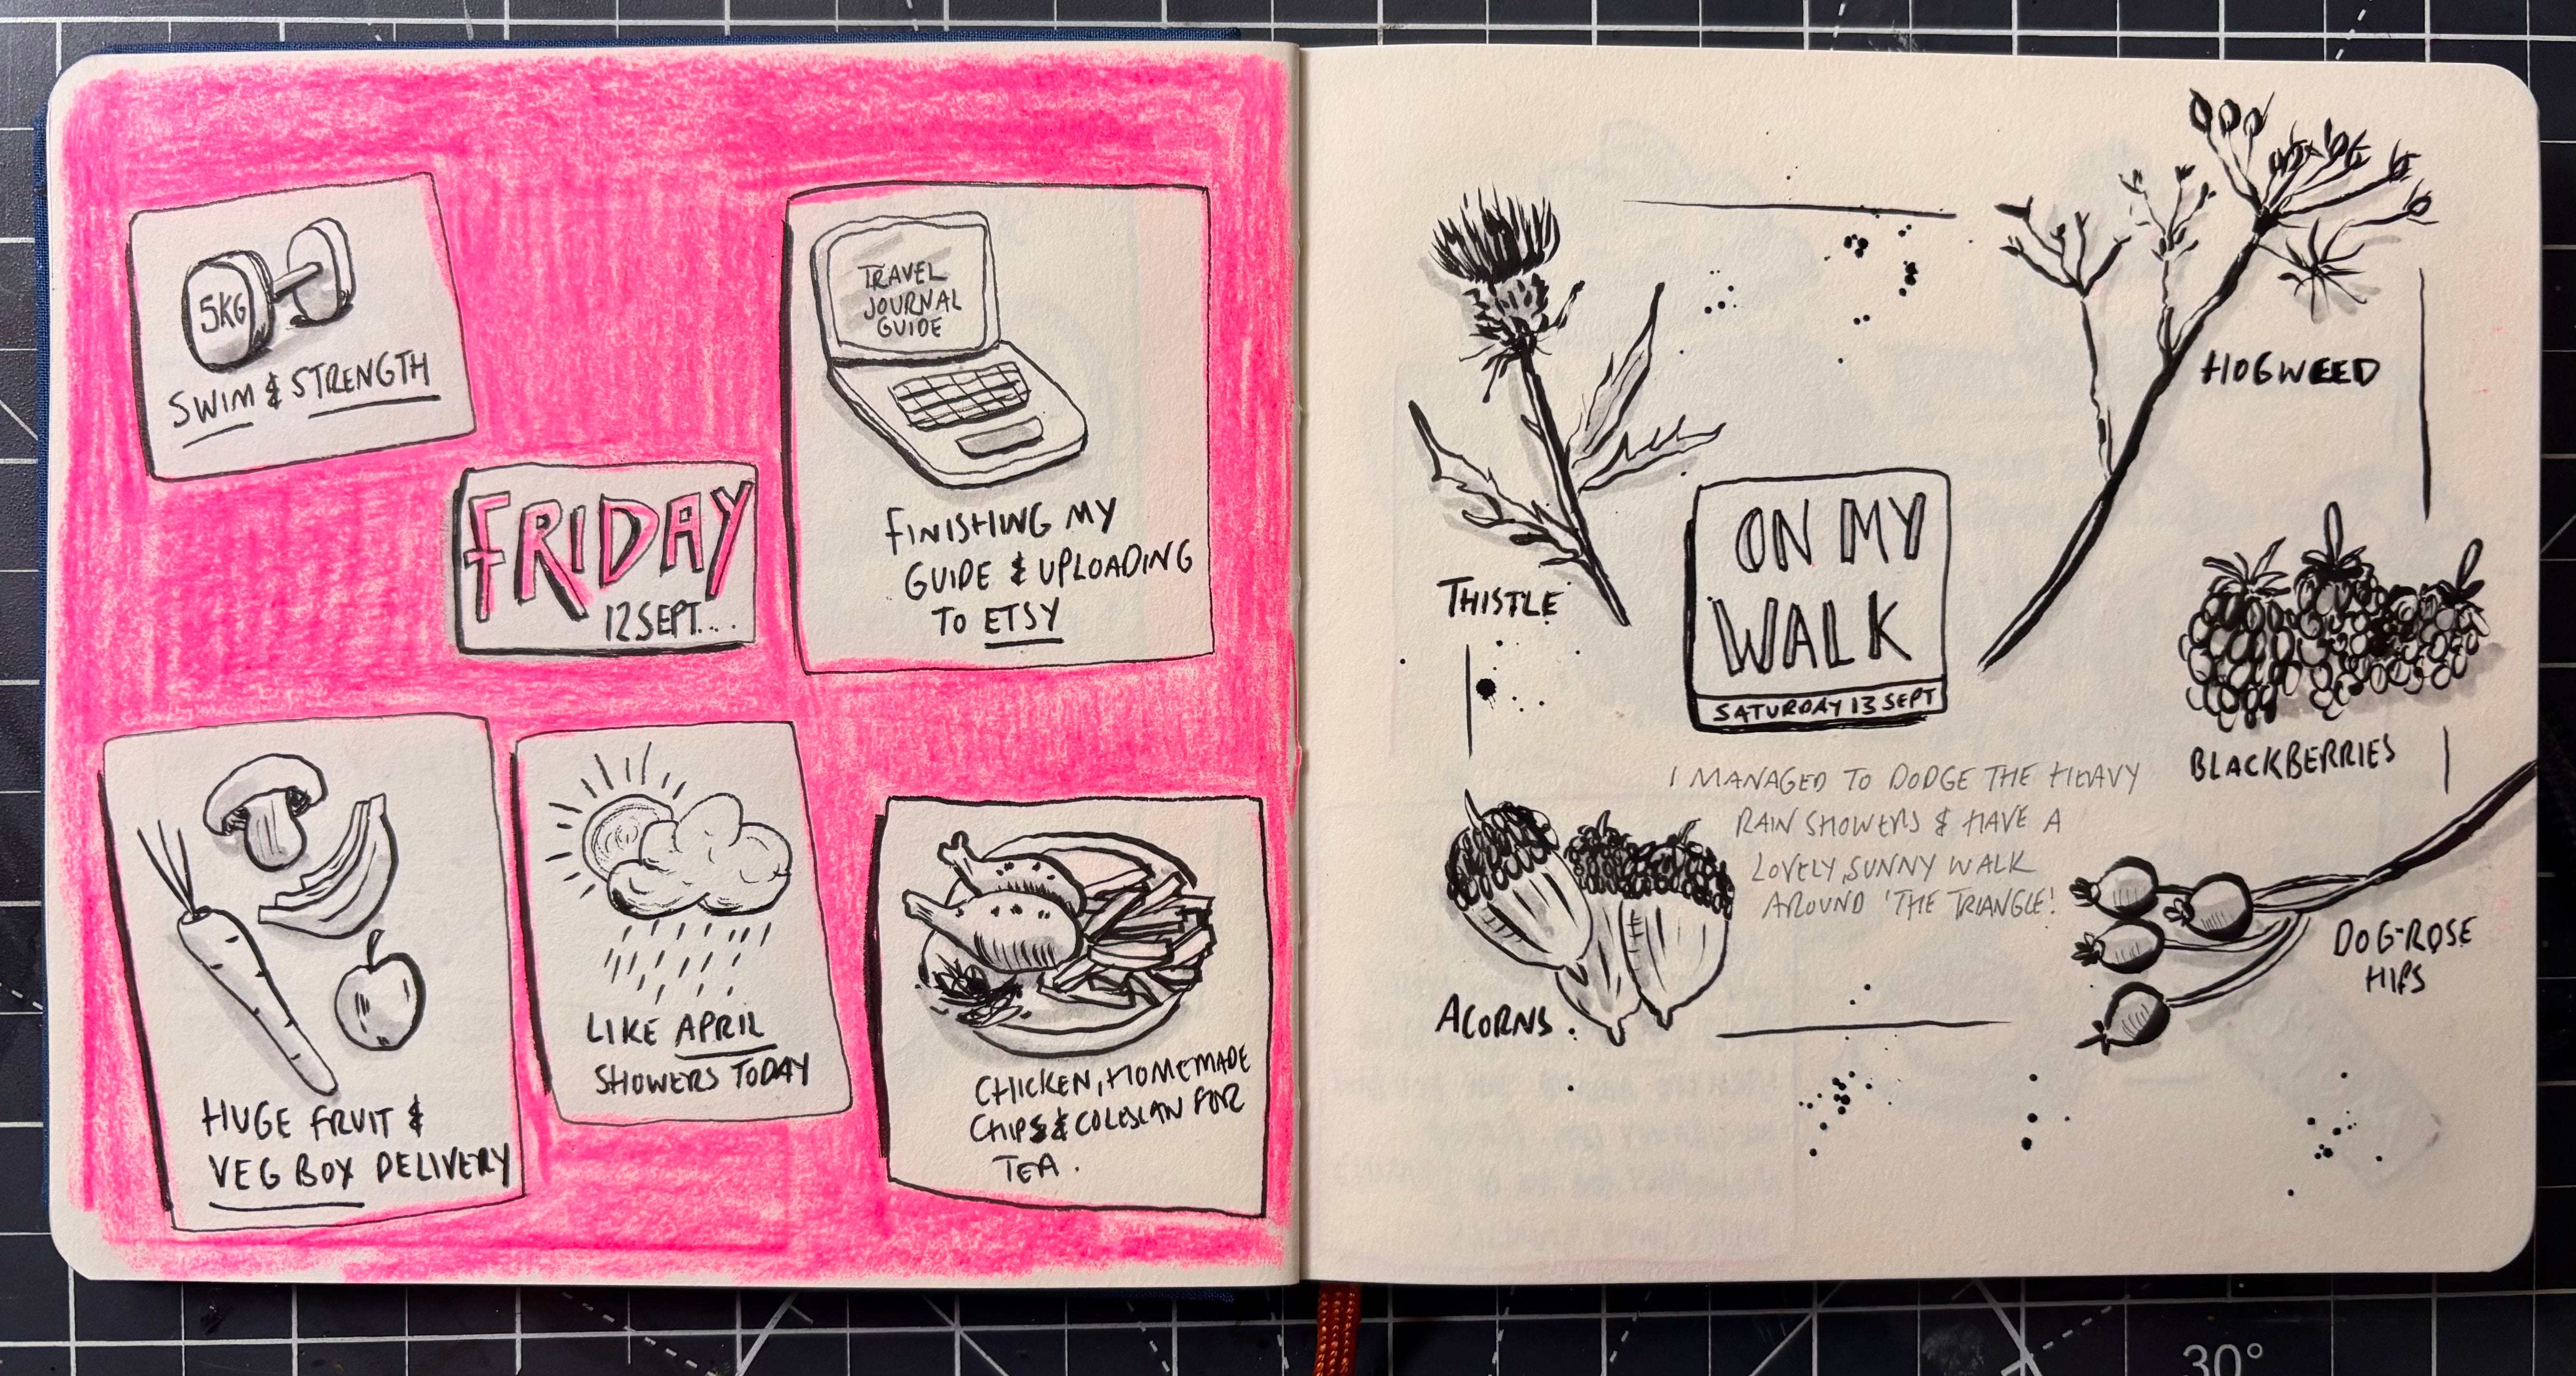 5KG
SWIM & STRENGTH
TRAVEL
JOURNAL
GUIDE
FINISHING MY
GUIDE & UPLOADING
TO ETSY
FRIDAY
12 SEPT...
HUGE FRUIT &
VEG BOX DELIVERY
LIKE APRIL
SHOWERS TODAY
CHICKEN, HOMEMADE
CHIPS & COLESLAW FOR
TEA.
THISTLE
HOGWEED
ON MY
WALK
SATURDAY 13 SEPT
BLACKBERRIES
I MANAGED TO DODGE THE HEAVY
RAIN SHOWERS & HAVE A
LOVELY, SUNNY WALK
AROUND 'THE TRIANGLE'!
ACORNS.
DOG-ROSE
HIPS
30°